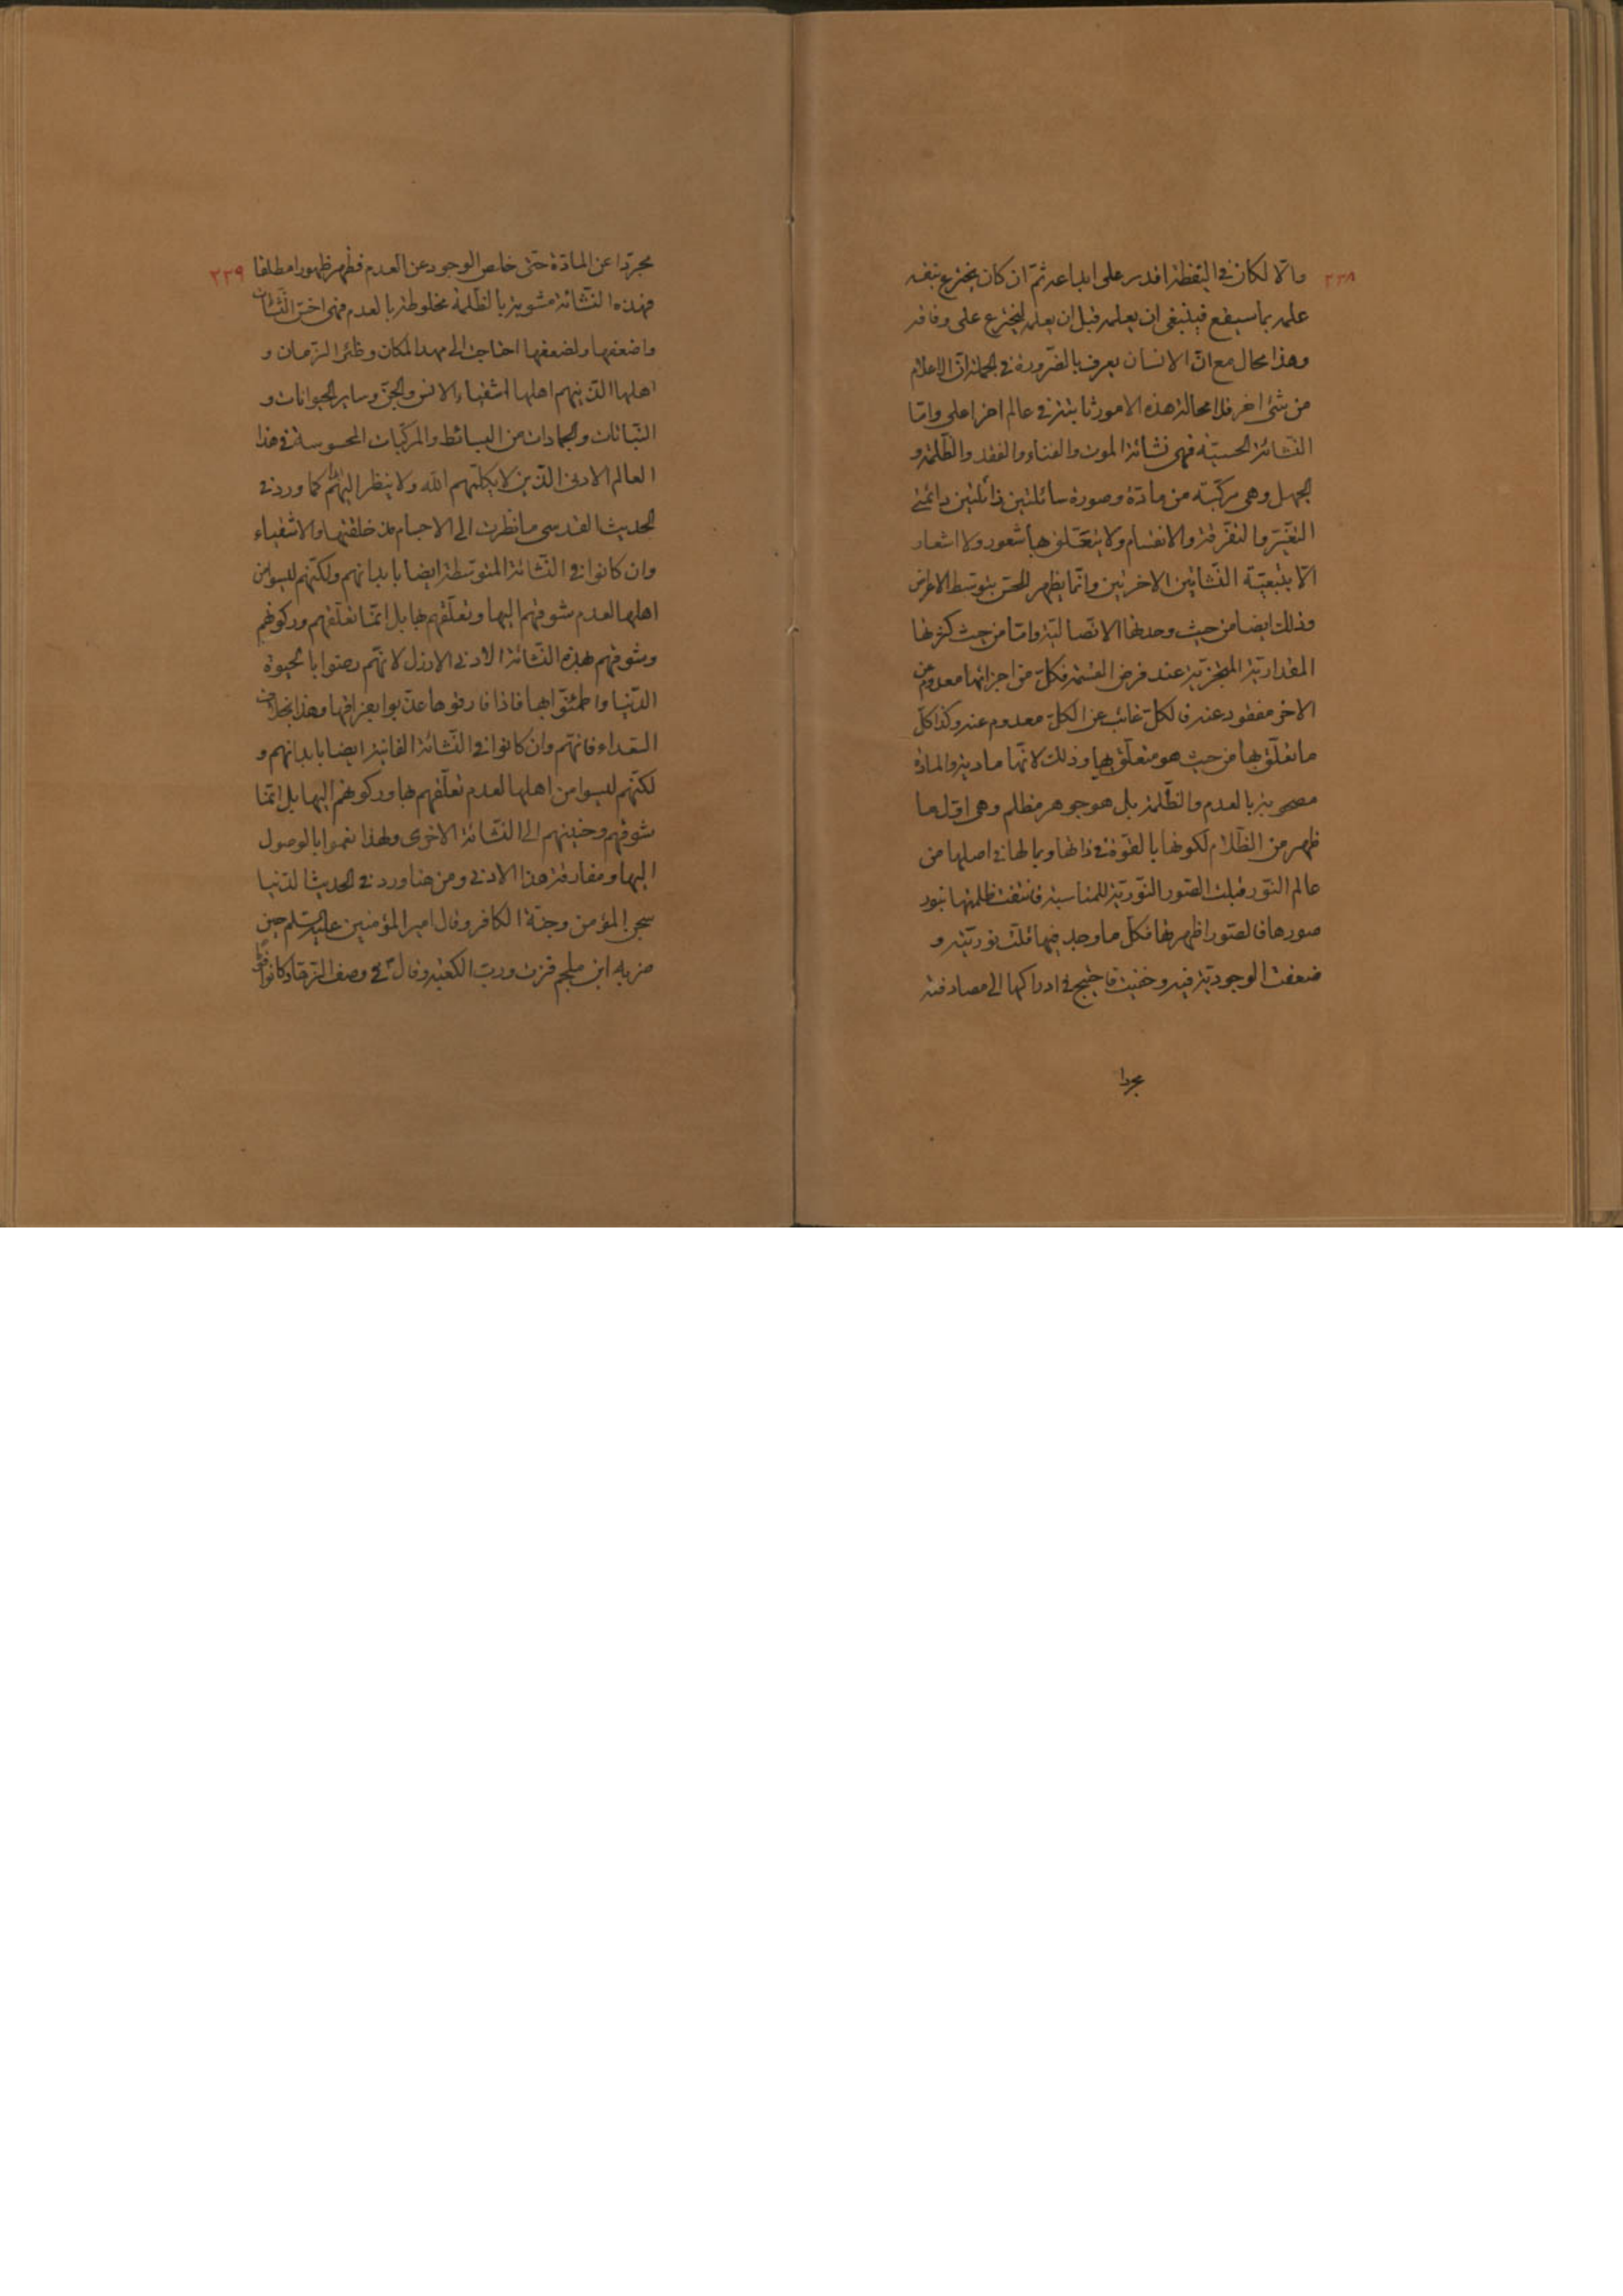 ٢٣٨
والّا لكان في اليقظة اقدر على ابداعه ثمّ ان كان يخترع بنفسه
علمه بما سيقع فينبغي ان يعلمه قبل ان يعلمه ليخترع على وفاقه
وهذا محال مع انّ الانسان يعرف بالضّرورة في الجملة انّ الاعلام
من شئ اخر فلا محالة هذه الامور ثابتة في عالم اخر اعلى وامّا
النّشائة الحسيّة فهى نشائة الموت والفناء والفقد والظّلمة و
الجهل وهى مركّبة من مادّة وصورة سائلتين زائلتين دائمتي
التغيّر والتفرّقة والانقسام ولا يتعلّق بها شعور ولا اشعار
الّا بتبعيّة النّشأتين الاخرتين وانّما يظهر للحسّ بتوسّط الاعراض
وذلك ايضا من حيث وحدتها الاتّصاليّة وامّا من حيث كثرتها
المقداريّة المتجزّية عند فرض القسمة فكلّ من اجزائها معدوم عن
الاخر مفقود عنه فالكلّ غائب عن الكلّ معدوم عنه وكذا كلّ
ما تعلّق بها من حيث هو متعلّق بها وذلك لانّها ماديّة والمادّة
مصحوبة بالعدم والظّلمة بل هو جوهر مظلم وهى اوّل ما
ظهر من الظّلام لكونها بالقوّة في ذاتها وبما لها في اصلها من
عالم النّور قبلت الصّور النّوريّة للمناسبة فانتفت ظلمتها بنور
صورها فالصّور اظهرتها فكلّ ما وجد فيها قلّت نوريّته و
ضعفت الوجوديّة فيه وخفيت فاحتيج في ادراكها الى مصادفته
مجردا
٢٢٩
مجرّدا عن المادّة حتّى خلص الوجود عن العدم فظهر ظهورا مطلقا
فهذه النّشائة مشوبة بالظّلمة مخلوطة بالعدم فهى اخسّ النّشآت
واضعفها ولضعفها احتاجت الى مهد المكان وظئر الزّمان و
اهلها الّذينهم اهلها اشقياء الانس والجنّ وساير الحيوانات و
النّباتات والجمادات من البسائط والمركّبات المحسوسة في هذا
العالم الادنى الّذين لا يكلّمهم اللّه ولا ينظر اليهم كما ورد في
الحديث القدسى ما نظرت الى الاجسام مذ خلقتها والاشقياء
وان كانوا في النّشائة المتوسّطة ايضا بابدانهم ولكنّهم ليسوا من
اهلها لعدم شوقهم اليها وتعلّقهم بها بل انّما تعلّقهم وركونهم
وشوقهم بهذه النّشائة الادنى الارذل لانّهم رضوا بالحيوة
الدّنيا واطمئنّوا بها فاذا فارقوها عذّبوا بفراقها وهذا بخلاف
السّعداء فانّهم وان كانوا في النّشائة الفانية ايضا بابدانهم و
لكنّهم ليسوا من اهلها لعدم تعلّقهم بها وركونهم اليها بل انّما
شوقهم وحنينهم الى النّشائة الاخرى ولهذا نعموا بالوصول
اليها ومفارقة هذا الادنى ومن هنا ورد في الحديث الدّنيا
سجن المؤمن وجنّة الكافر وقال امير المؤمنين عليه السّلم حين
ضربه ابن ملجم فزت وربّ الكعبة وقال ع في وصف الزّهّاد كانوا